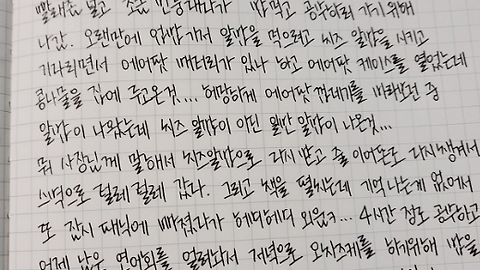 빨래를 널고 조금 빈둥대다가 밥먹고 공부하러 가기 위해
나감. 오랜만에 김밥 가서 알밥을 먹으려고 치즈 알밥을 시키고
기다리면서 에어팟 배터리가 있나 하고 에어팟 케이스를 열었는데
콩나물을 집에 두고온것... 허망하게 에어팟 껍데기를 바라보던 중
알밥이 나왔는데 치즈 알밥이 아닌 일반 알밥이 나온것...
뭐 사장님께 말해서 치즈알밥으로 다시 받고 줄 이어폰도 다시 챙겨서
털레 털레 갔다. 그리고 책을 펼쳤는데 기억나는게 없어서
또 잠시 패닉에 빠졌다가 헤디헤디 외웠ㅋ... 4시간 정도 공부하고
어제 남은 연어회를 저녁으로 오차즈케를 하기위해 밥을